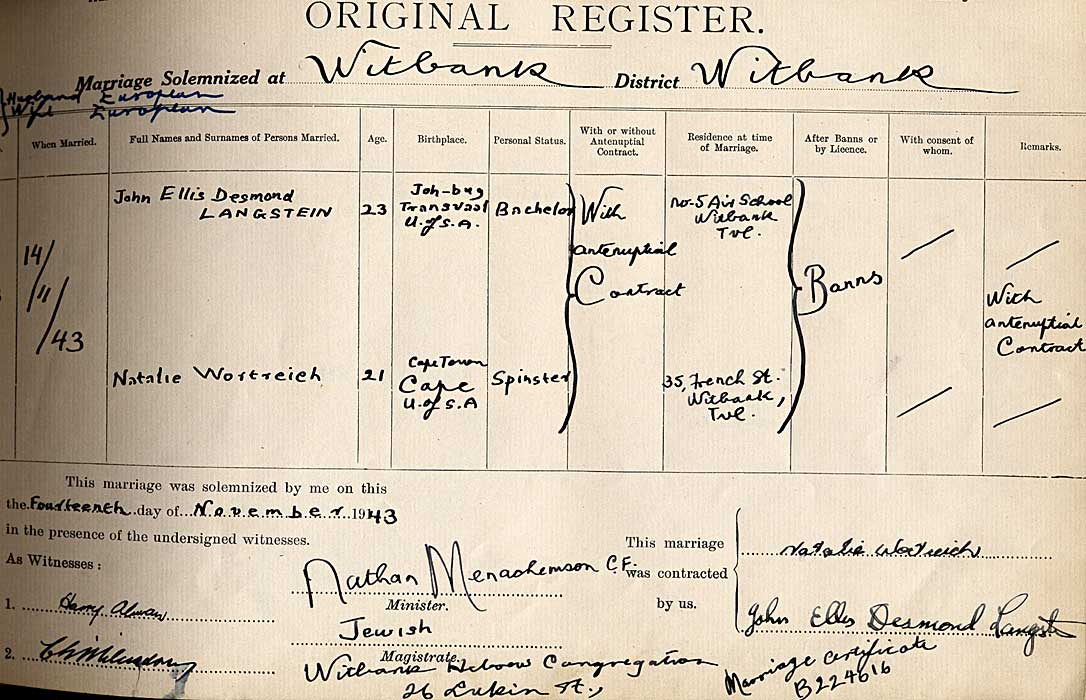 ORIGINAL REGISTER.
Marriage Solemnized at Witbank District Witbank
Husband European
Wife European
When Married. Full Names and Surnames of Persons Married. Age. Birthplace. Personal Status. With or without Antenuptial Contract. Residence at time of Marriage. After Banns or by Licence. With consent of whom. Remarks.
14/
11/
/43
John Ellis Desmond
LANGSTEIN
23
Joh-burg
Transvaal
U.of S.A.
Bachelor
With
antenuptial
Contract
No-5 Air School
Witbank
Tvl.
Banns
With
antenuptial
Contract
Natalie Wortreich
21
Cape Town
Cape
U.of S.A
Spinster
35, French St.
Witbank,
Tvl.
This marriage was solemnized by me on this
the Fourteenth day of November 1943
in the presence of the undersigned witnesses.
As Witnesses:
1. Harry
2.
Nathan Menachemson C.F.
Minister.
Jewish
Magistrate.
Witbank Hebrew Congregation
26 Lukin St.,
This marriage
was contracted
by us.
Natalie Wortreich
John Ellis Desmond Langstein
Marriage Certificate
B224616